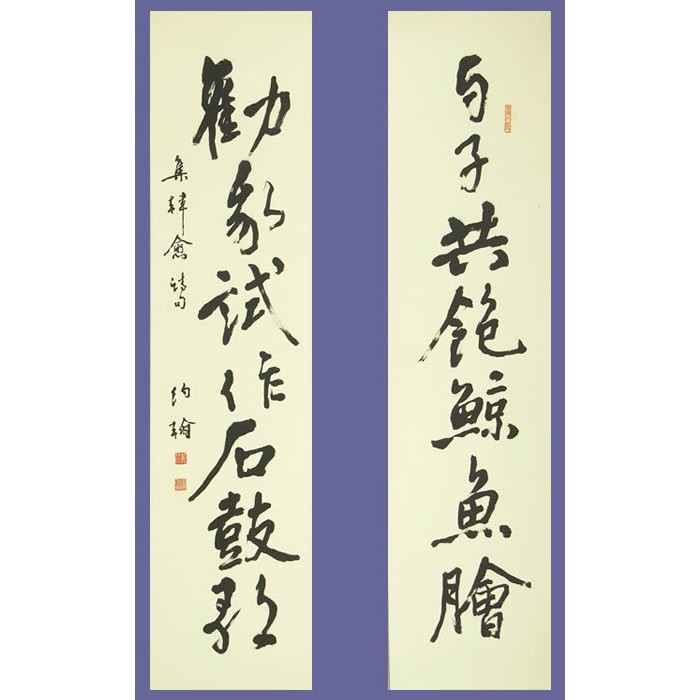 与子共飽鯨魚膾
勸我試作石鼓歌
集韓愈詩句
約翰